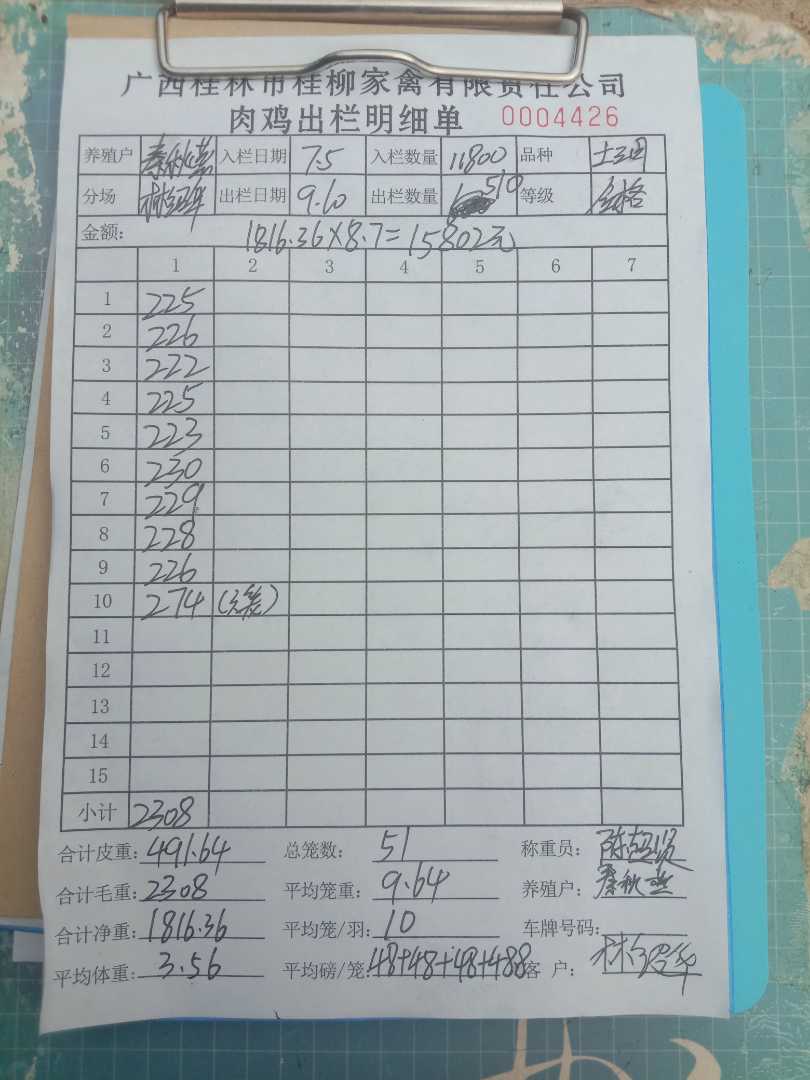 广西桂林市桂柳家禽有限责任公司
肉鸡出栏明细单 0004426
养殖户 秦秋燕 入栏日期 7.5 入栏数量 11800 品种
分场 出栏日期 9.10 出栏数量 510 等级 合格
金额: 1816.36×8.7=15802元
1 2 3 4 5 6 7
1 225
2 226
3 222
4 225
5 223
6 230
7 229
8 228
9 226
10 274
11
12
13
14
15
小计 2308
合计皮重: 491.64 总笼数: 51 称重员:
合计毛重: 2308 平均笼重: 9.64 养殖户: 秦秋燕
合计净重: 1816.36 平均笼/羽: 10 车牌号码:
平均体重: 3.56 平均磅/笼: 48+48+48+488 客 户: